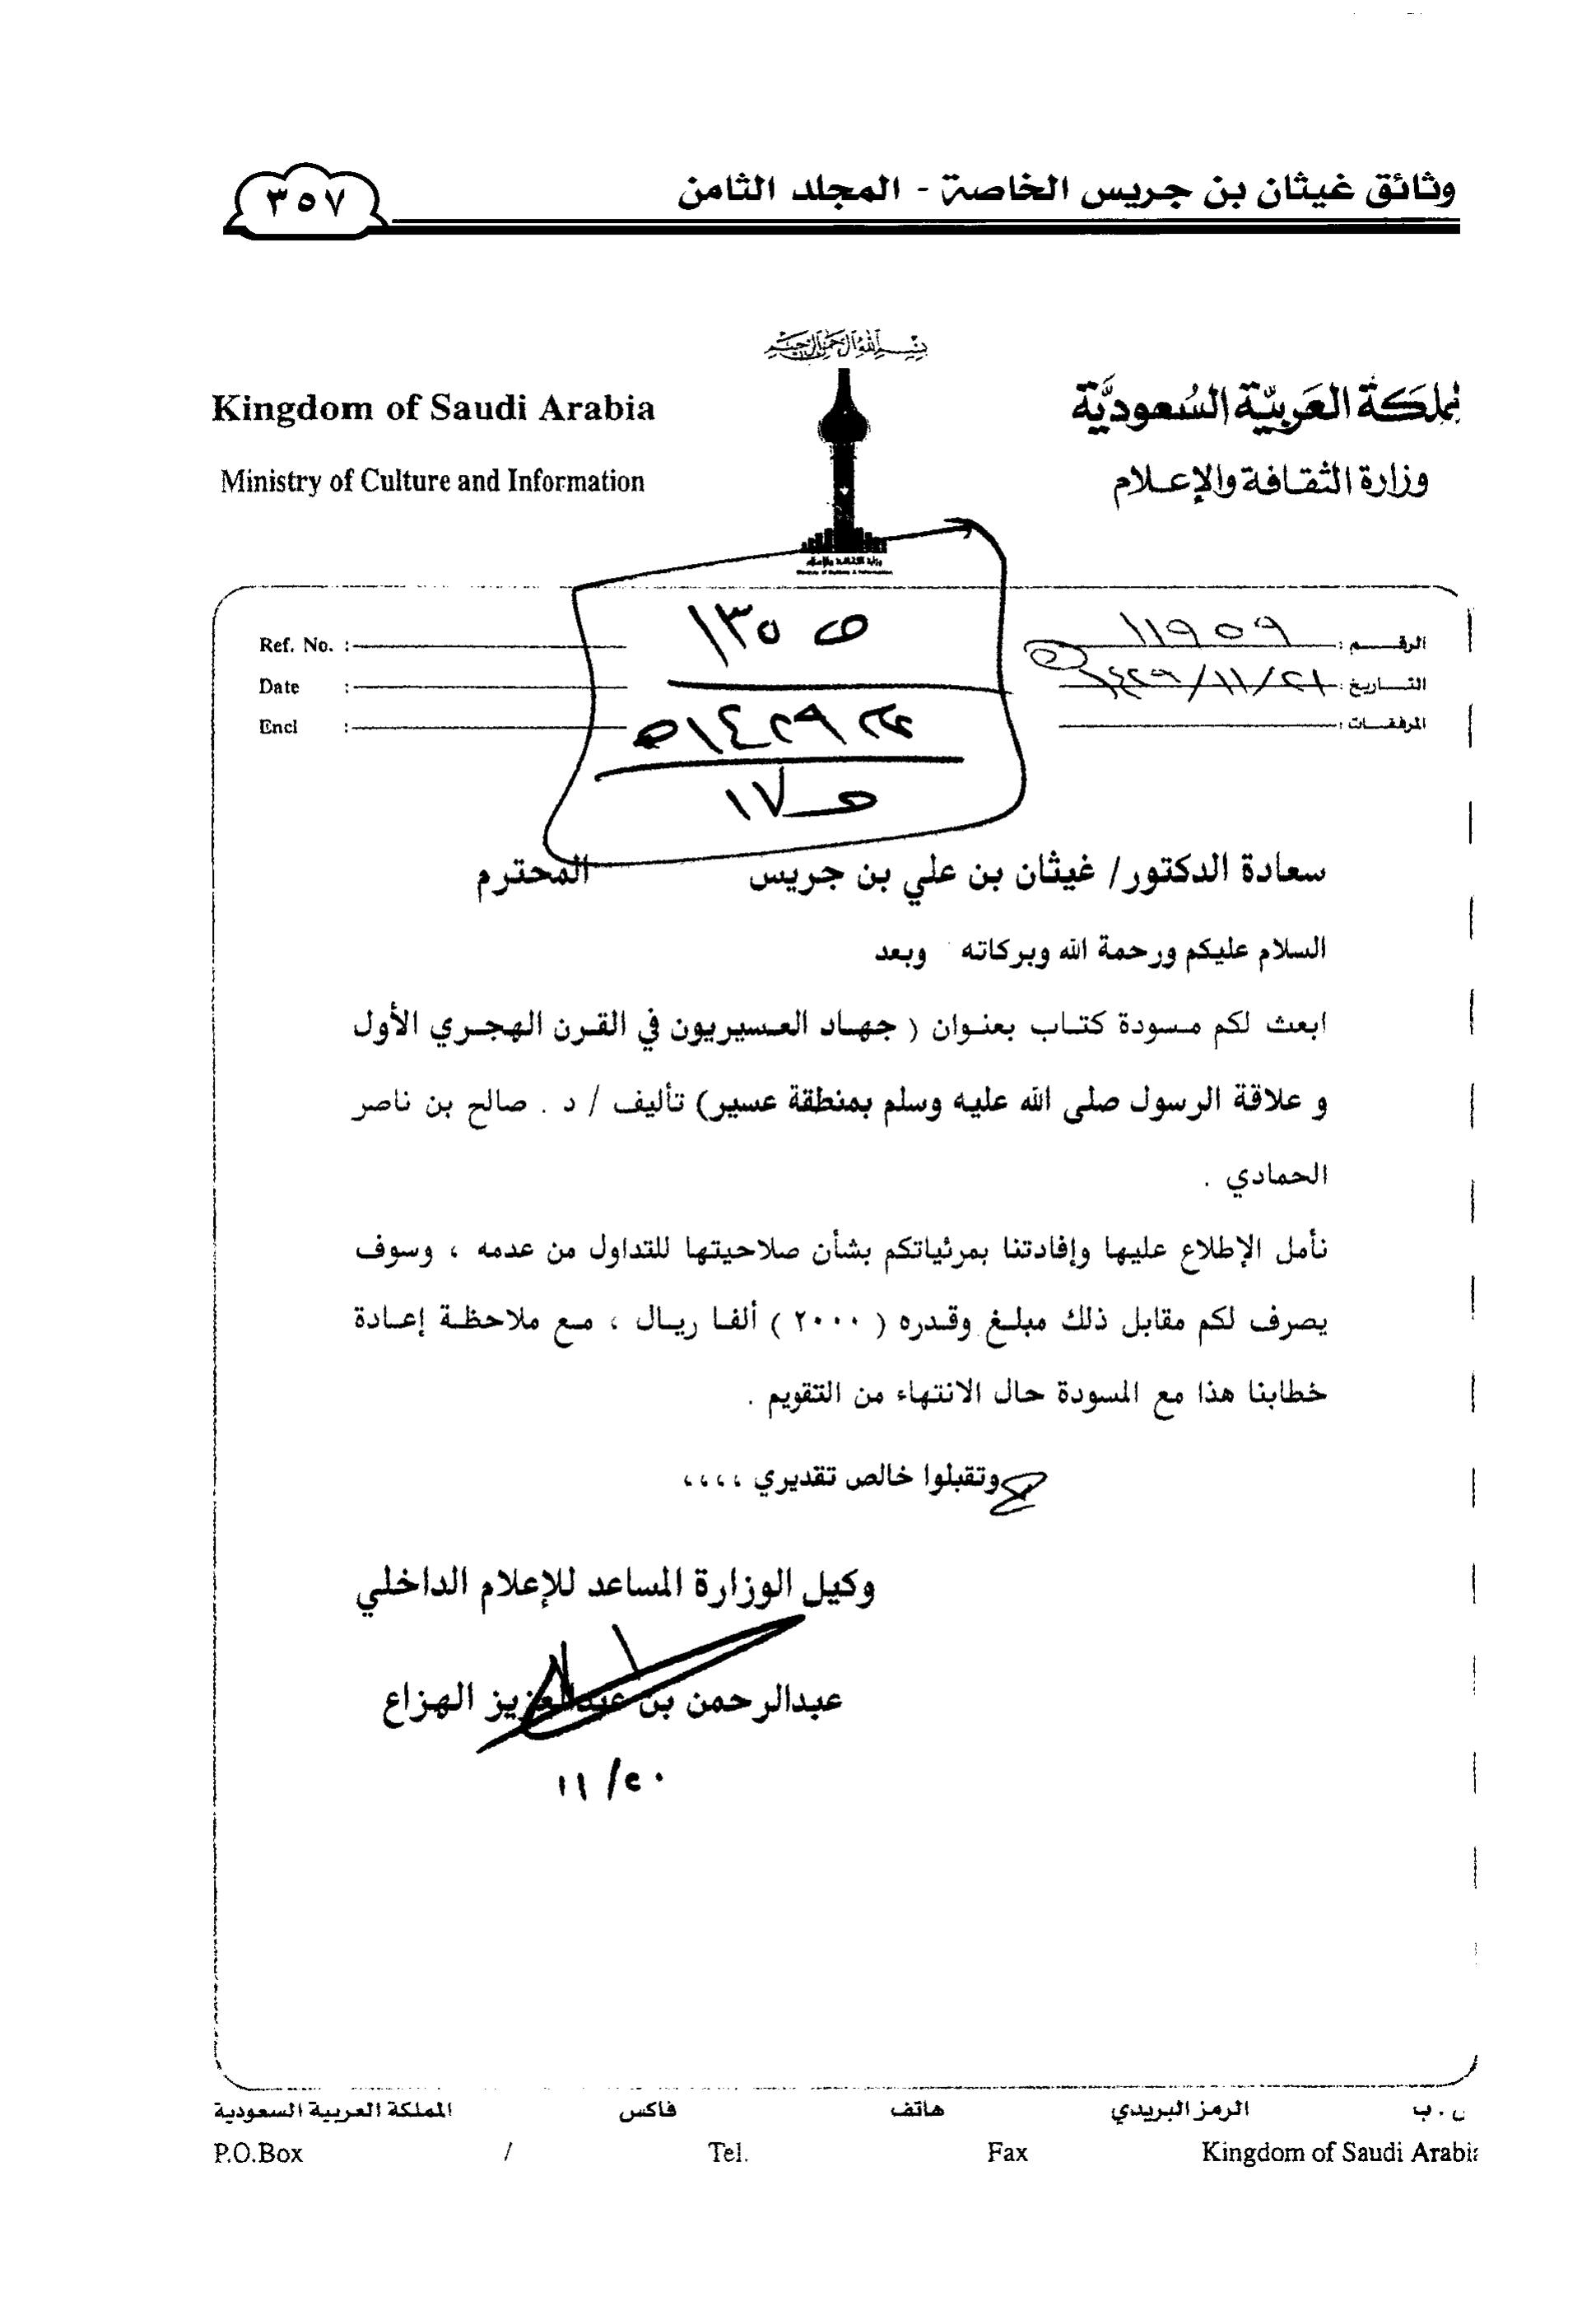 وثائق غيثان بن جريس الخاصة - المجلد الثامن
٣٥٧
بسم الله الرحمن الرحيم
Kingdom of Saudi Arabia
Ministry of Culture and Information
المملكة العربية السعودية
وزارة الثقافة والإعلام
Ref. No. :
Date :
Encl :
الرقم : ١١٩٥٩
التاريخ : ١٤٢٩/١١/٢١
المرفقات :
١٣٥
١٤٢٩
١٧
سعادة الدكتور/ غيثان بن علي بن جريس المحترم
السلام عليكم ورحمة الله وبركاته وبعد
ابعث لكم مسودة كتاب بعنوان ( جهاد العسيريون في القرن الهجري الأول
و علاقة الرسول صلى الله عليه وسلم بمنطقة عسير) تأليف / د . صالح بن ناصر
الحمادي .
نأمل الإطلاع عليها وإفادتنا بمرئياتكم بشأن صلاحيتها للتداول من عدمه ، وسوف
يصرف لكم مقابل ذلك مبلغ وقدره ( ٢٠٠٠ ) ألفا ريال ، مع ملاحظة إعادة
خطابنا هذا مع المسودة حال الانتهاء من التقويم .
وتقبلوا خالص تقديري ،،،،
وكيل الوزارة المساعد للإعلام الداخلي
عبدالرحمن بن عبدالعزيز الهزاع
١١/٢٠
ص . ب الرمز البريدي هاتف فاكس المملكة العربية السعودية
P.O.Box / Tel. Fax Kingdom of Saudi Arabia